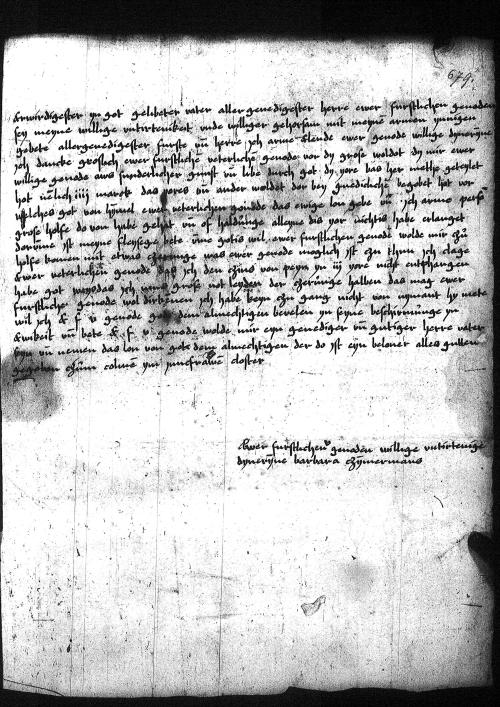 679.
Erwirdigester yn got gelibeter vater aller genedigester herre ewer furstlichen genoden
sey meyne willige vntirtenikeit vnde williger gehorsam mit meyne armen ynnigen
gebete allergenedigester furste vn herre ich arme elende ewer genode willige dyneryne
ich dancke groslich ewer furstliche veterliche genode vor dy grose woldot dy mir ewer
willige genode aws sunderlicher gunst vn libe durch got dy yore bas her methe geteylet
hot nemlich iiij marck das yores vn ander woldot dor bey gnedicliche begobet hot vor
wsselches got von hymel ewer veterlicher genode das ewige lon gebe vn ich arme
grose holfe do von habe gehat vn of haldunge alleyne dis yor nichtis habe erlanget
dorume ist meyne fleysege bete vme gotis wil ewer furstlichen genode wolde mir
holfe komen mit etwas was ewer genode moglich ist czu thun ich clage
Ewer veterlichen genode das ich den czins von yn iij yore nicht entphangen
habe got ich vmb grose not leyden der halben das mag ewer
furstliche genode wol dirkenen ich habe keyn czu gang nicht von nymant hy mete
wil ich E f v genode dem almechtigen bevelen yn seyne beschirmunge yn
vn bete E f v genode wolde mir eyn genediger vn gutiger herre vater
seyn vn nemen das lon von got dem almechtigen der do ist eyn beloner alles gutten
gegeben czum colme ym juncfrawen closter
Ewer furstlichen genoden willige vntirtenige
dyneryne barbara czymermans